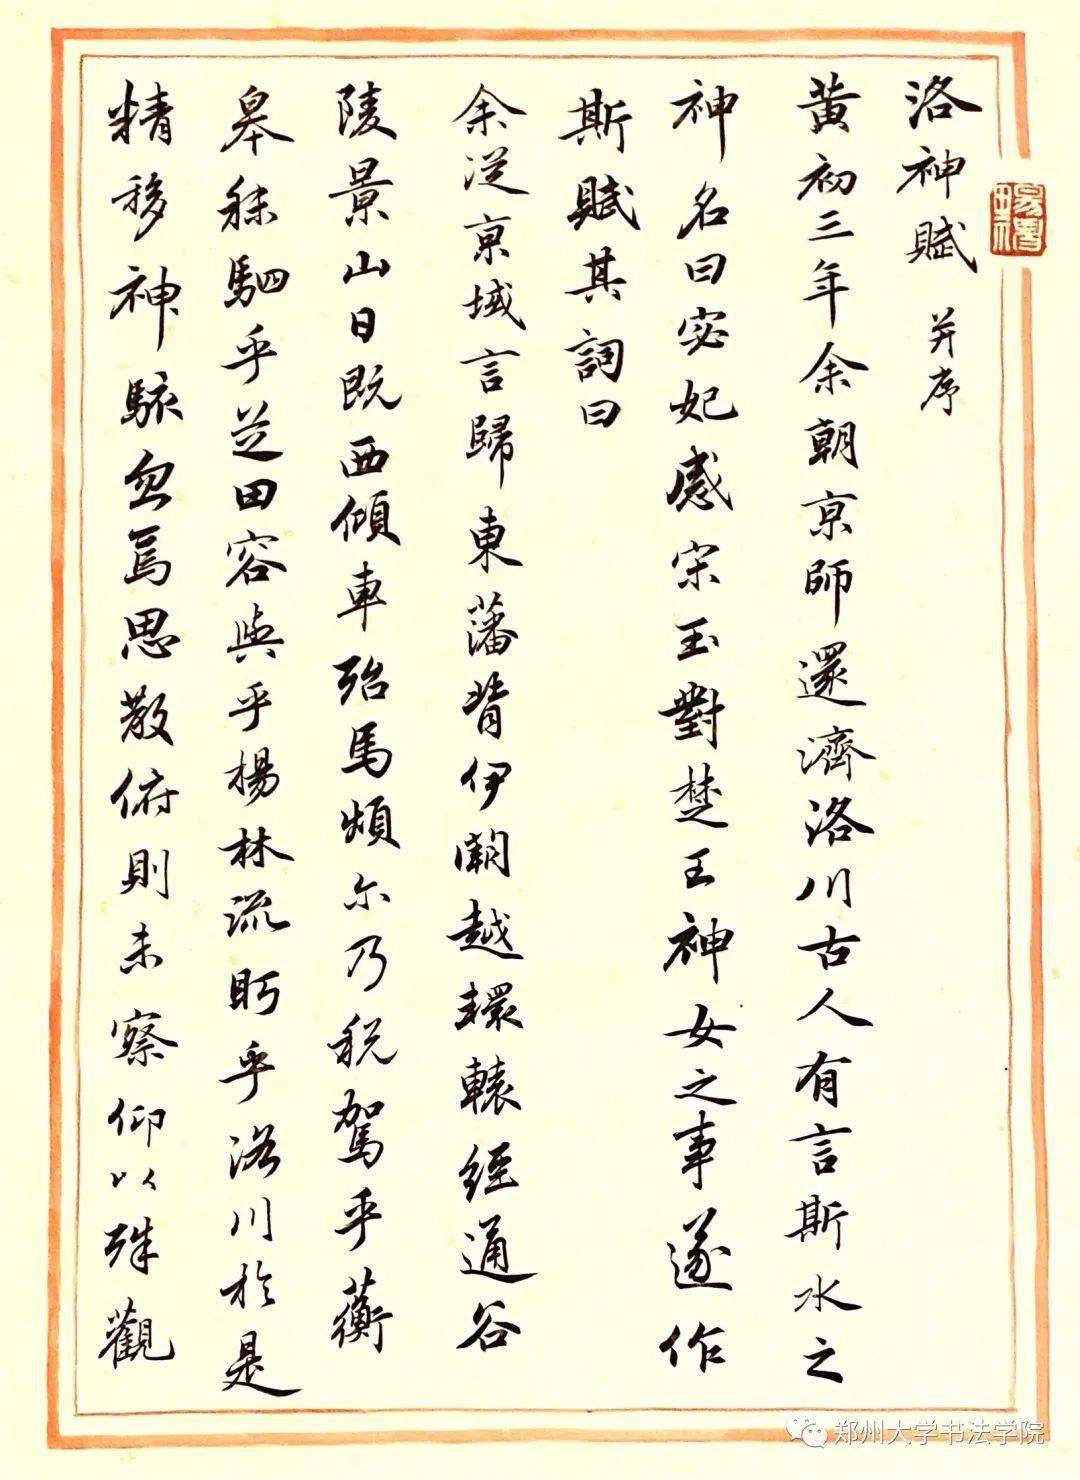 洛神賦 并序
黃初三年余朝京師還濟洛川古人有言斯水之
神名曰宓妃感宋玉對楚王神女之事遂作
斯賦其詞曰
余從京域言歸東藩背伊闕越轘轅經通谷
陵景山日既西傾車殆馬煩尔乃税駕乎蘅
皋秣駟乎芝田容與乎楊林流眄乎洛川於是
精移神駭忽焉思散俯則未察仰以殊觀
郑州大学书法学院